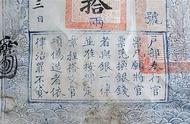 號
拾兩
戶部奏行官
票凡願將官
票兌換銀錢
者與銀一律
並准按部定
章程搭交官
項偽造者依
律治罪不貸
三日